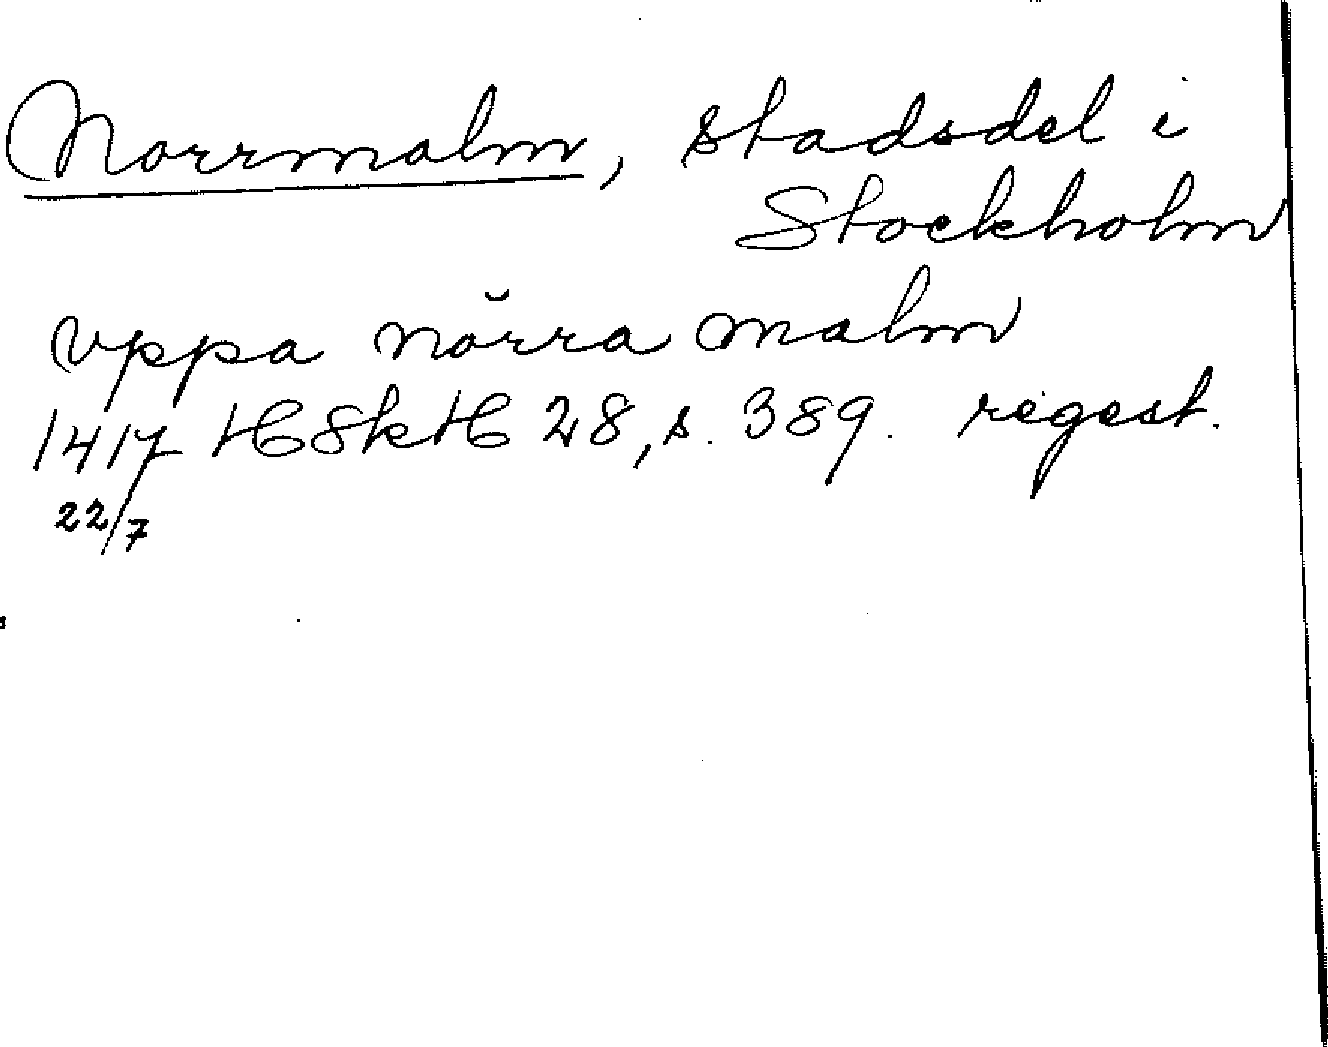 Norrmalm, stadsdel i
Stockholm
vppa nörra malm
1417 HSkH 28, s. 389. regest.
22/7